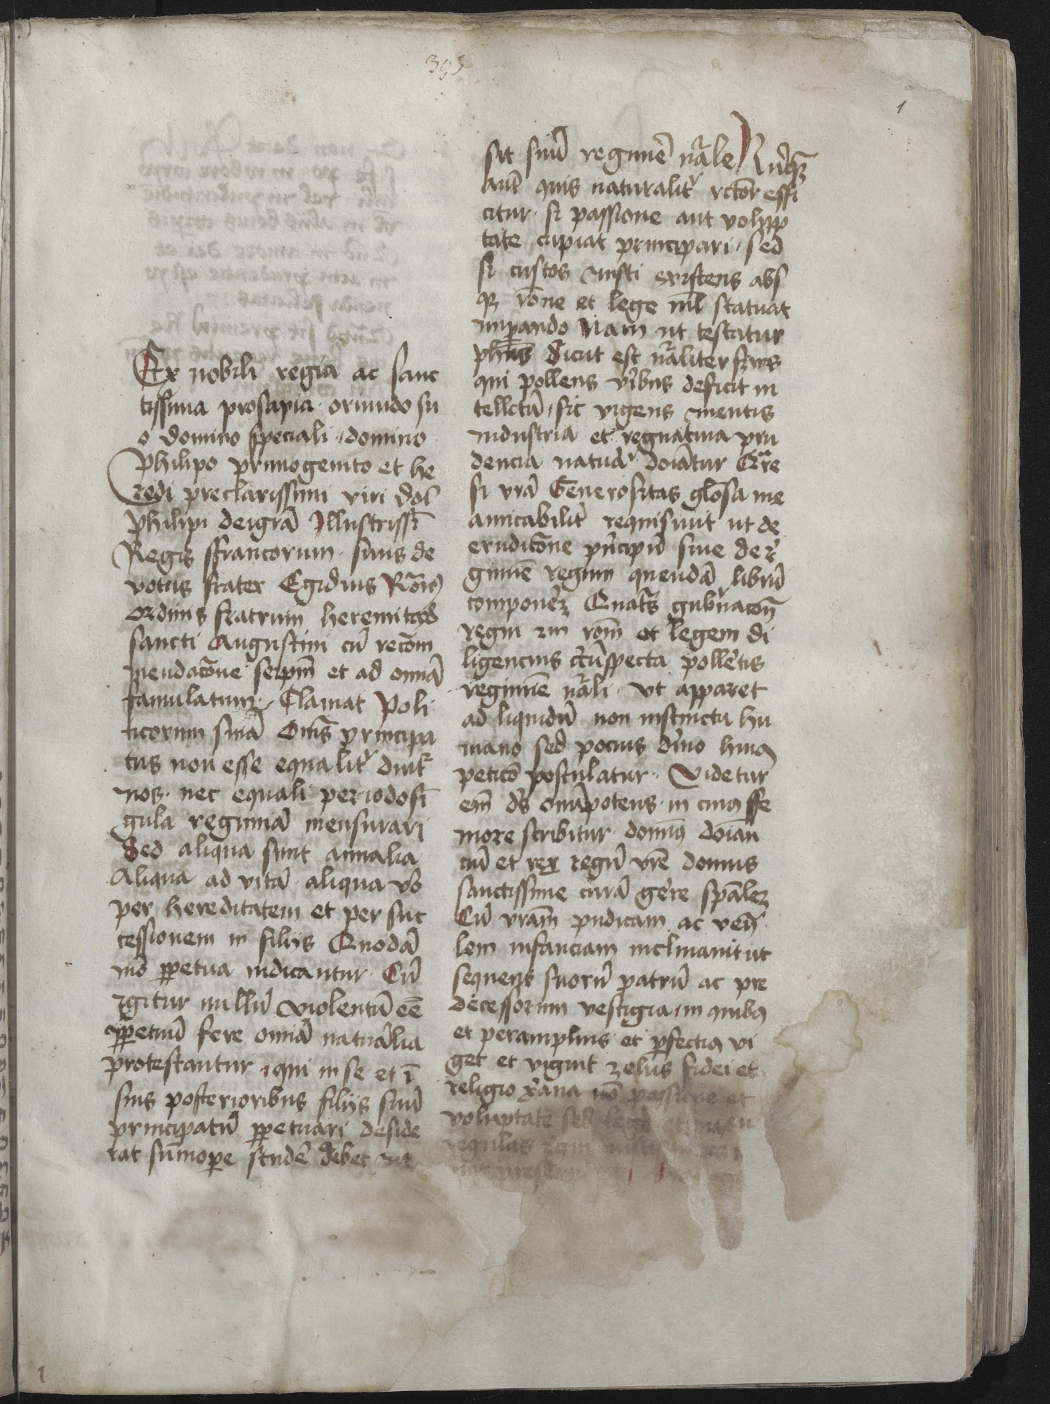 393
1
Ex nobili regia ac sanc
tissima prosapia oriundo su
o domino speciali domino
Philipo primogenito et he
redi preclarissimi viri dn̄i
philipi dei grā Illustrissī
Regis ffrancorum suus de
votus frater Egidius Rōmꝰ
ordinis fratrum heremitaꝝ
sancti Augustini cū recōm
mendacōne seipm̄ et ad om̄ia
famulatum Clamat Poli
ticorum sn̄ia Om̄s principa
tus non esse equalit̄ diut̄
nos nec equali periodo si
gula regimina mensurari
Sed aliqua sunt annalia
Aliqua ad vitā aliqua vo̊
per hereditatem et per suc
cessionem in filiis Quodā
mo̊ ꝑpetua indicantur Cū
igitur nullū violentū eē
ꝑpetuū fere om̄ia naturalia
protestantur qui in se et ī
suis posterioribus filiis suū
principatū ꝑpetuari deside
rat summope studē debet ut
sit suū regimē nr̄ale Nūqꝫ
aut̄ quis naturalit̄ rector effi
citur si passione aut volup
tate cupiat principari sed
si custos iusti existens abs
qꝫ rōne et lege nil statuat
imperando Nam ut testatur
phus sicut est nr̄aliter servus
qui pollens viribus deficit in
tellectu sic vigens mentis
industria et regnatiua pru
dencia natural' doīatur Qr̄e
si vrā Generositas glosa me
amicabilit̄ requisiuit ut de
erudicōne pn̄cipū siue de re
gimīe regum quendā librū
componerē Quatꝰ gubn̄acōē
regni s̄m rōm̄ et legem di
ligencius cr̄cūspecta pollētis
regimīe nr̄ali Vt apparet
ad liquidū non instinctu hu
mano sed pocius di̊no hmꝰ
peticō postulatur Videtur
em̄ ds̄ om̄ipotens in cuiꝰ ffe
more scribitur domīꝰ doīan
ciū et rex regū vrē domus
sanctissime curā gerē spālē
Cū vrām pudicam ac ven̄
lem infanciam inclinauit ut
sequens suorū patrū ac pre
decessorum vestigia in quibꝰ
et peramplius et ꝑfectiꝰ vi
get et viguit zelus fidei et
religio xr̄iana nō passione et
voluptate sed lege et
regulas
1